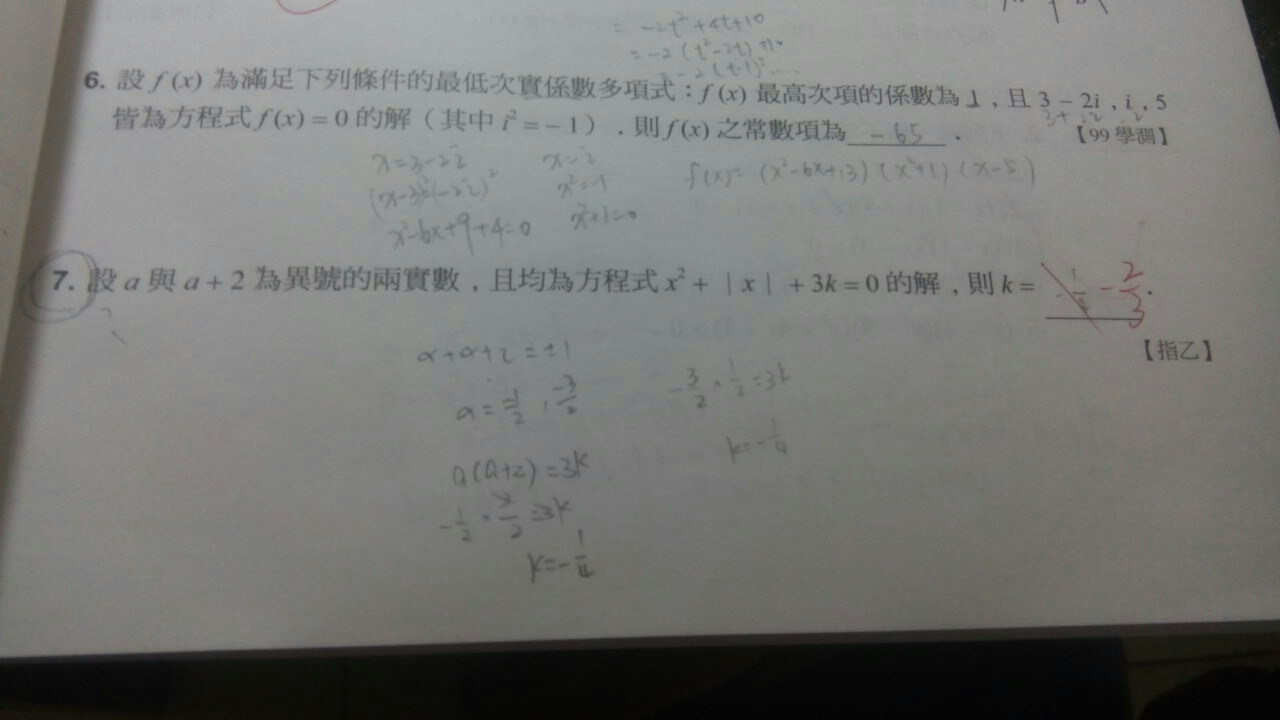 = -2t² + 4t + 10
= -2 (t² - 2t) + 10
= -2 (t-1)² ...
6. 設 f (x) 為滿足下列條件的最低次實係數多項式：f (x) 最高次項的係數為 1，且 3 − 2i，i，5
皆為方程式 f (x) = 0 的解（其中 i² = − 1），則 f (x) 之常數項為 -65 . 【99 學測】
x = 3 - 2i x = i f(x) = (x² - 6x + 13) (x² + 1) (x - 5)
x² = -1
x² - 6x + 9 + 4 = 0 x² + 1 = 0
7. 設 a 與 a + 2 為異號的兩實數，且均為方程式 x² + | x | + 3k = 0 的解，則 k = - 2/3 .
【指乙】
a + a + 2 = ±1
a = -1/2 , -3/2 -3/2 × 1/2 = 3k
k = -1/4
a(a+2) = 3k